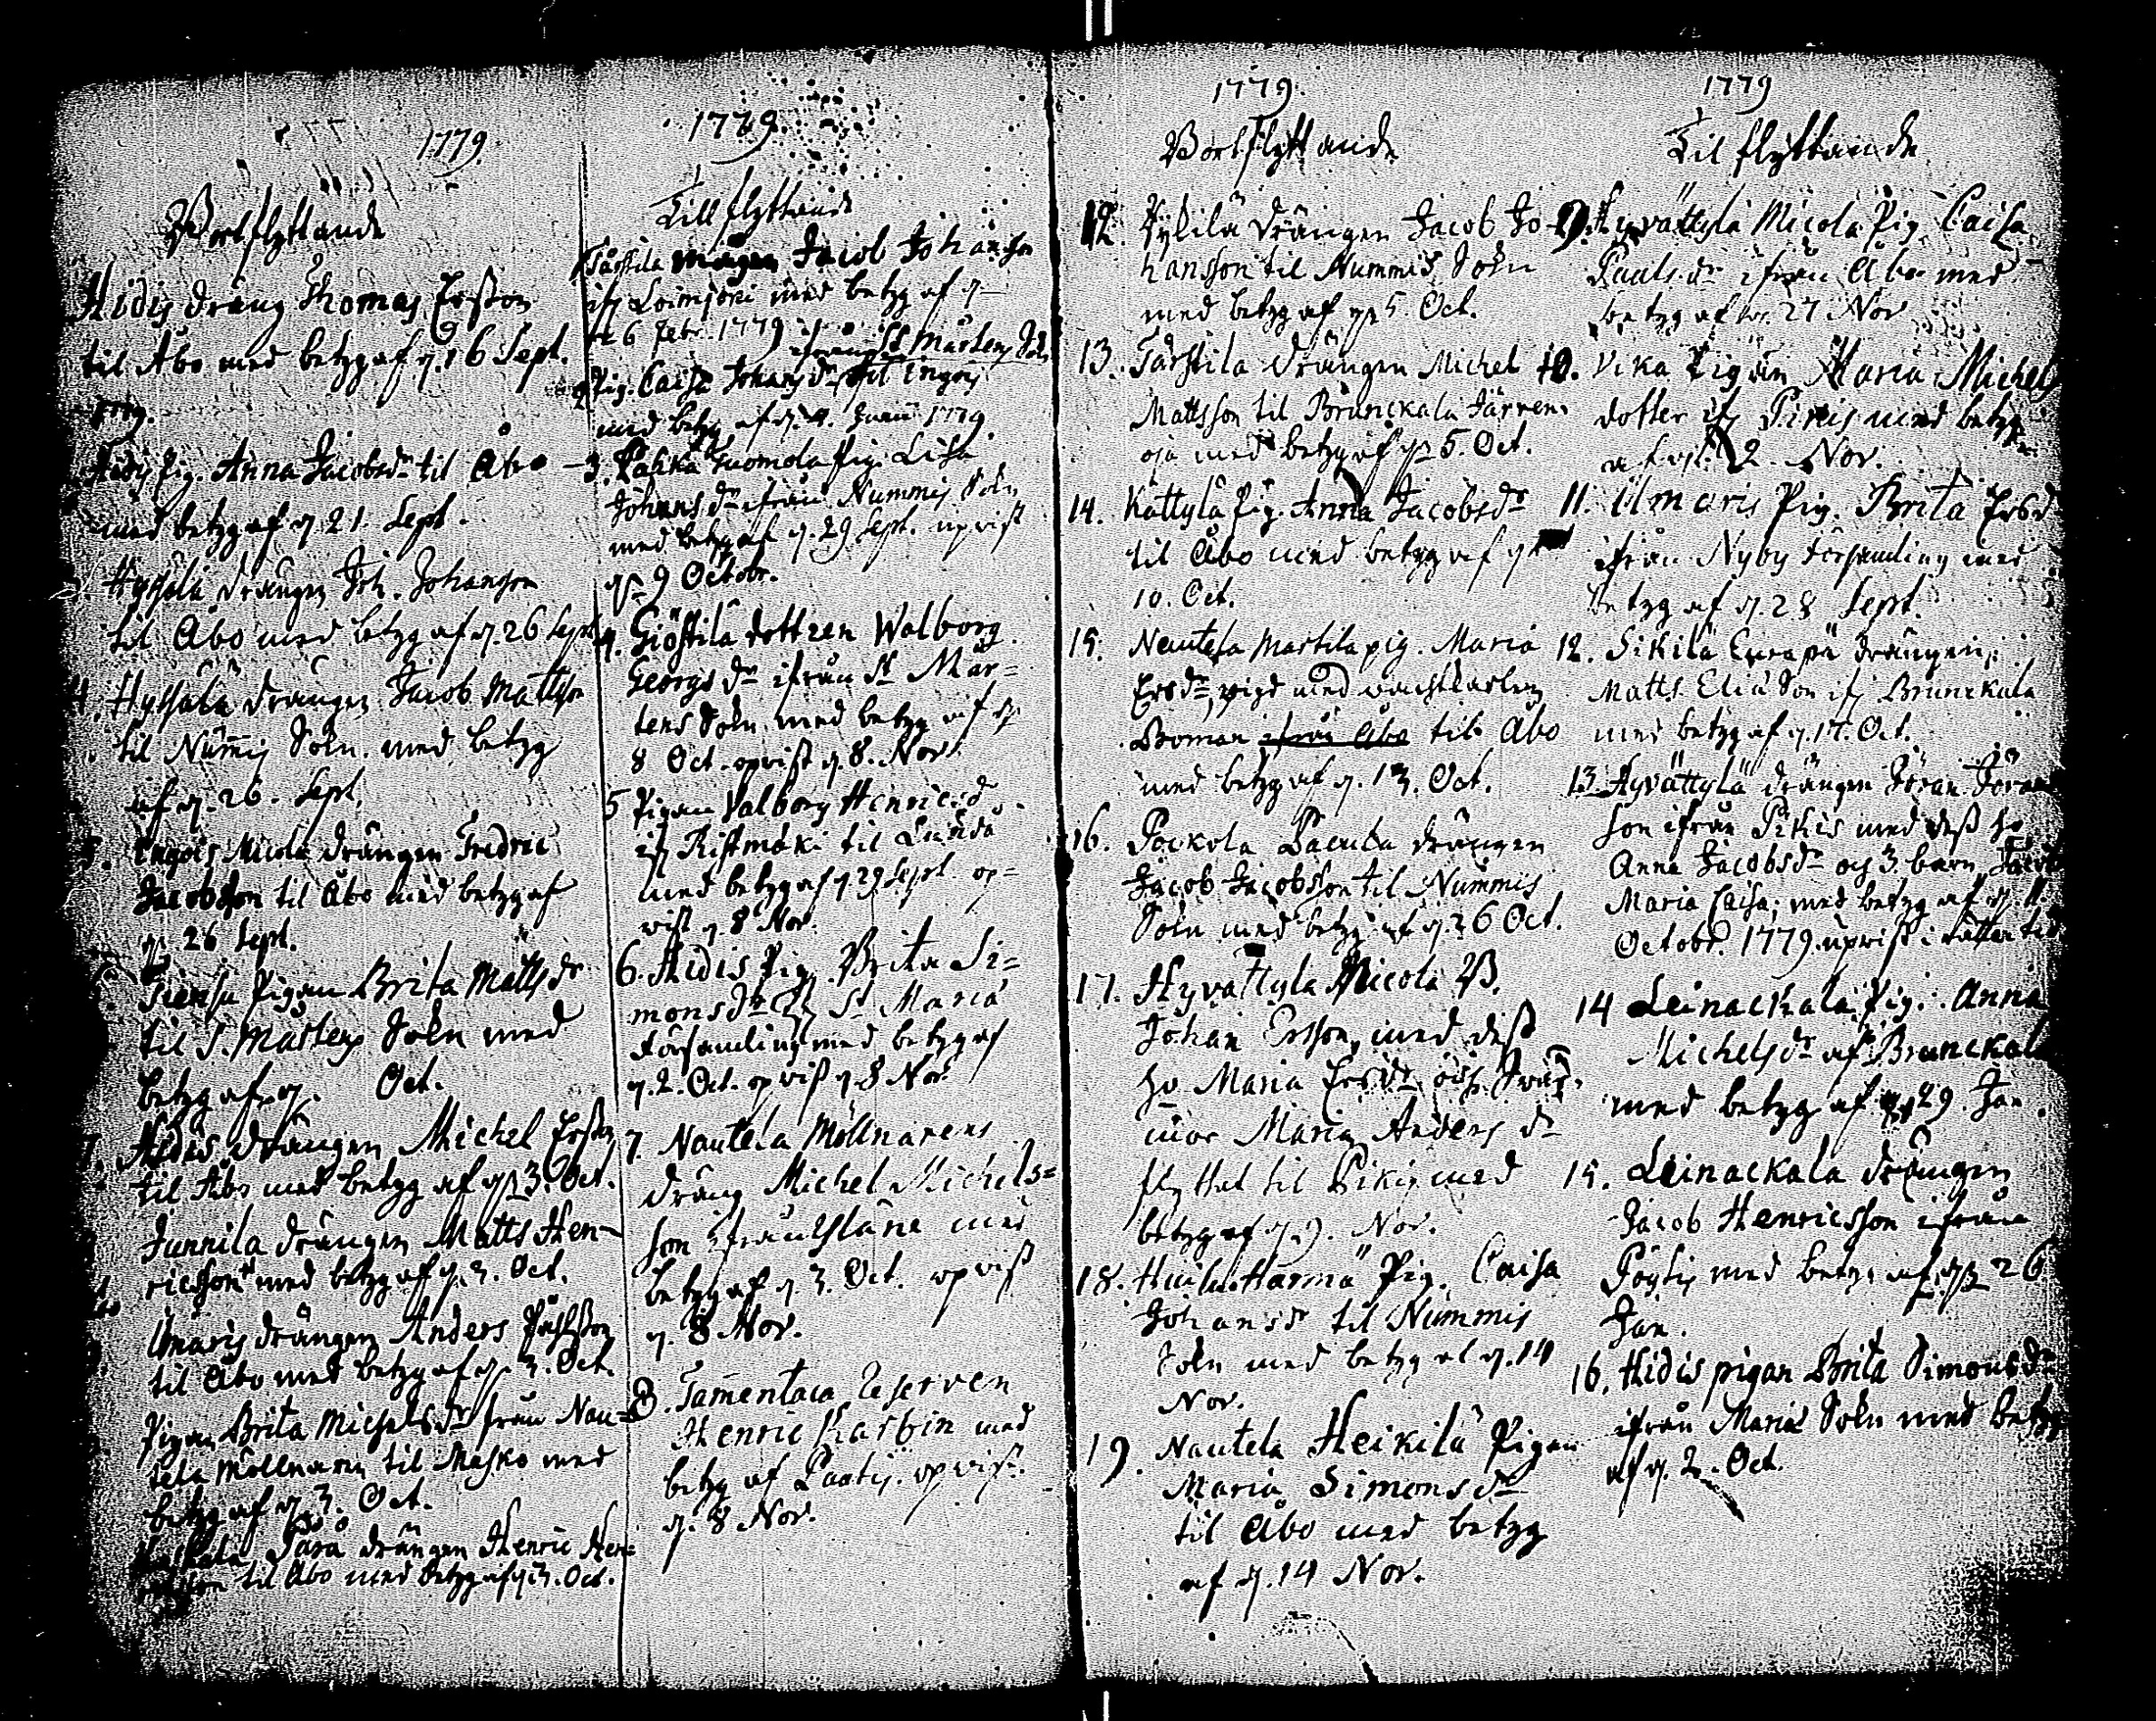 1779
Bortflyttande
Hidis dräng Thomas Ersson
til Åbo med betyg af d. 16 Sept.
1779.
Hidis Pig. Anna Jacobsdr til Åbo
med betyg af d. 21. Sept.
Hyssälä drängen Joh. Johansson
til Åbo med betyg af d. 26 Sept
4. Hyssälä drängen Jacob Mattsson
til Nummis Sokn. med betyg
af d. 26. Sept.
5. Ingois Micola drängen Fredric
Jacobsson til Åbo med betyg af
d. 26 Sept.
Pigan Brita Matts dr
til S. Mårtens Sokn med
betyg af d. Oct.
7. Hidis drängen Michel Ersson
til Åbo med betyg af d. 3. Oct.
Junnila drängen Matts Hen-
ricsson med betyg af d. 3. Oct.
drängen Anders
til Åbo med betyg af d. 3. Oct.
Pigan Brita Michelsdr från Nau-
tela Möllnaren til Masko med
betyg af d. 3. Oct.
drängen Henric Hen=
til Åbo med betyg af d. 3. Oct.
1779.
Till flyttande
1. Tårstila Jacob Johansson
ifr Loimjoki med betyg af d
26 Febr. 1779
ifrån St Mårtens Sokn
2 Pig. Caisa Johansdr til Ingois
med betyg af d. 4. 1779.
3. Juomola Pig. Lisa
Johansdr ifrån Nummis Sokn
med betyg af d. 29 Sept. upvist
d. 9 Octobr.
4. Giöstila dottren Walborg
Georgsdr ifrån St Mår=
tens Sokn med betyg af d
8 Oct. opvist d. 8. Nov.
5 Pigan Valborg Henricsd
ifr Ristmäki til
med betyg af d 29 Sept. op=
vist d 8 Nov.
6. Hidis Pig. Brita Si=
monsdr ifr St Maria
Församling med betyg af
d. 2. Oct. opvist d. 8 Nov.
7. Nautela Möllnarens
dräng Michel Michels=
son ifrån med
betyg af d. 3. Oct. opvist
d. 8 Nov.
8. Reserven
Henric Karbin med
betyg af opvist
d. 8 Nov.
1779.
Bortflyttande
12. drängen Jacob Jo-
hansson til Nummis Sokn
med betyg af d. 5. Oct.
13. Tårstila drängen Michel
Mattsson til Brunckala Järven=
oja med betyg af d. 5. Oct.
14. Kättylä Pig. Anna Jacobsdr
til Åbo med betyg af d
10. Oct.
15. Nautela Martila pig. Maria
Ersdr, vigd med
Boman ifrån Åbo til Åbo
med betyg af d. 13. Oct.
16. drängen
Jacob Jacobsson til Nummis
Sokn med betyg af d. 26 Oct.
17. Hyvättylä Micola B.
Johan Ersson, med dess
hu Maria Ersdr och Svär=
mor Maria Anders dr
flyttat til Pikis med
betyg af d. 9. Nov.
18. Härmä Pig. Caisa
Johansdr til Nummis
Sokn med betyg af d. 14
Nov.
19. Nautela Heikilä Pigan
Maria Simonsdr
til Åbo med betyg
af d. 14 Nov.
1779
Til flyttande
9. Hyvättylä Micola Pig. Caisa
Paulsdr ifrån Åbo med
betyg af d. 27 Nov
10. Vika Pigan Maria Michels
dotter ifr Pikis med betyg
af d. 2. Nov.
11. Ilmaris Pig. Brita Ersd
ifrån Nyby Församling med
betyg af d. 28 Sept.
12. Sikilä drängen
Matts Elia Son ifr Brunckala
med betyg af d. 17. Oct.
13. Hyvättylä drängen Jöran Jöran
son ifrån Pikis med dess hu
Anna Jacobsdr och 3. barn, Jacob
Maria Caisa, med betyg af d.
Octobr. 1779. upvist i rättan tid
14 Leinackala Pig. Anna
Michelsdr af Brunckala
med betyg af d 29. Jan.
15. Leinackala drängen
Jacob Henricsson ifrån
Pöytis med betyg af d. 26
Jan.
16. Hidis pigan Brita Simonsdr
ifrån Mariæ Sokn med betyg
af d. 2. Oct.